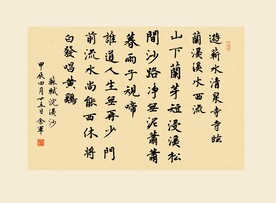 遊蘄水清泉寺寺臨
蘭溪溪水西流
山下蘭芽短浸溪松
間沙路淨無泥蕭蕭
暮雨子規啼
誰道人生無再少門
前流水尚能西休將
白發唱黃雞
蘇軾浣溪沙
甲辰四月十五日